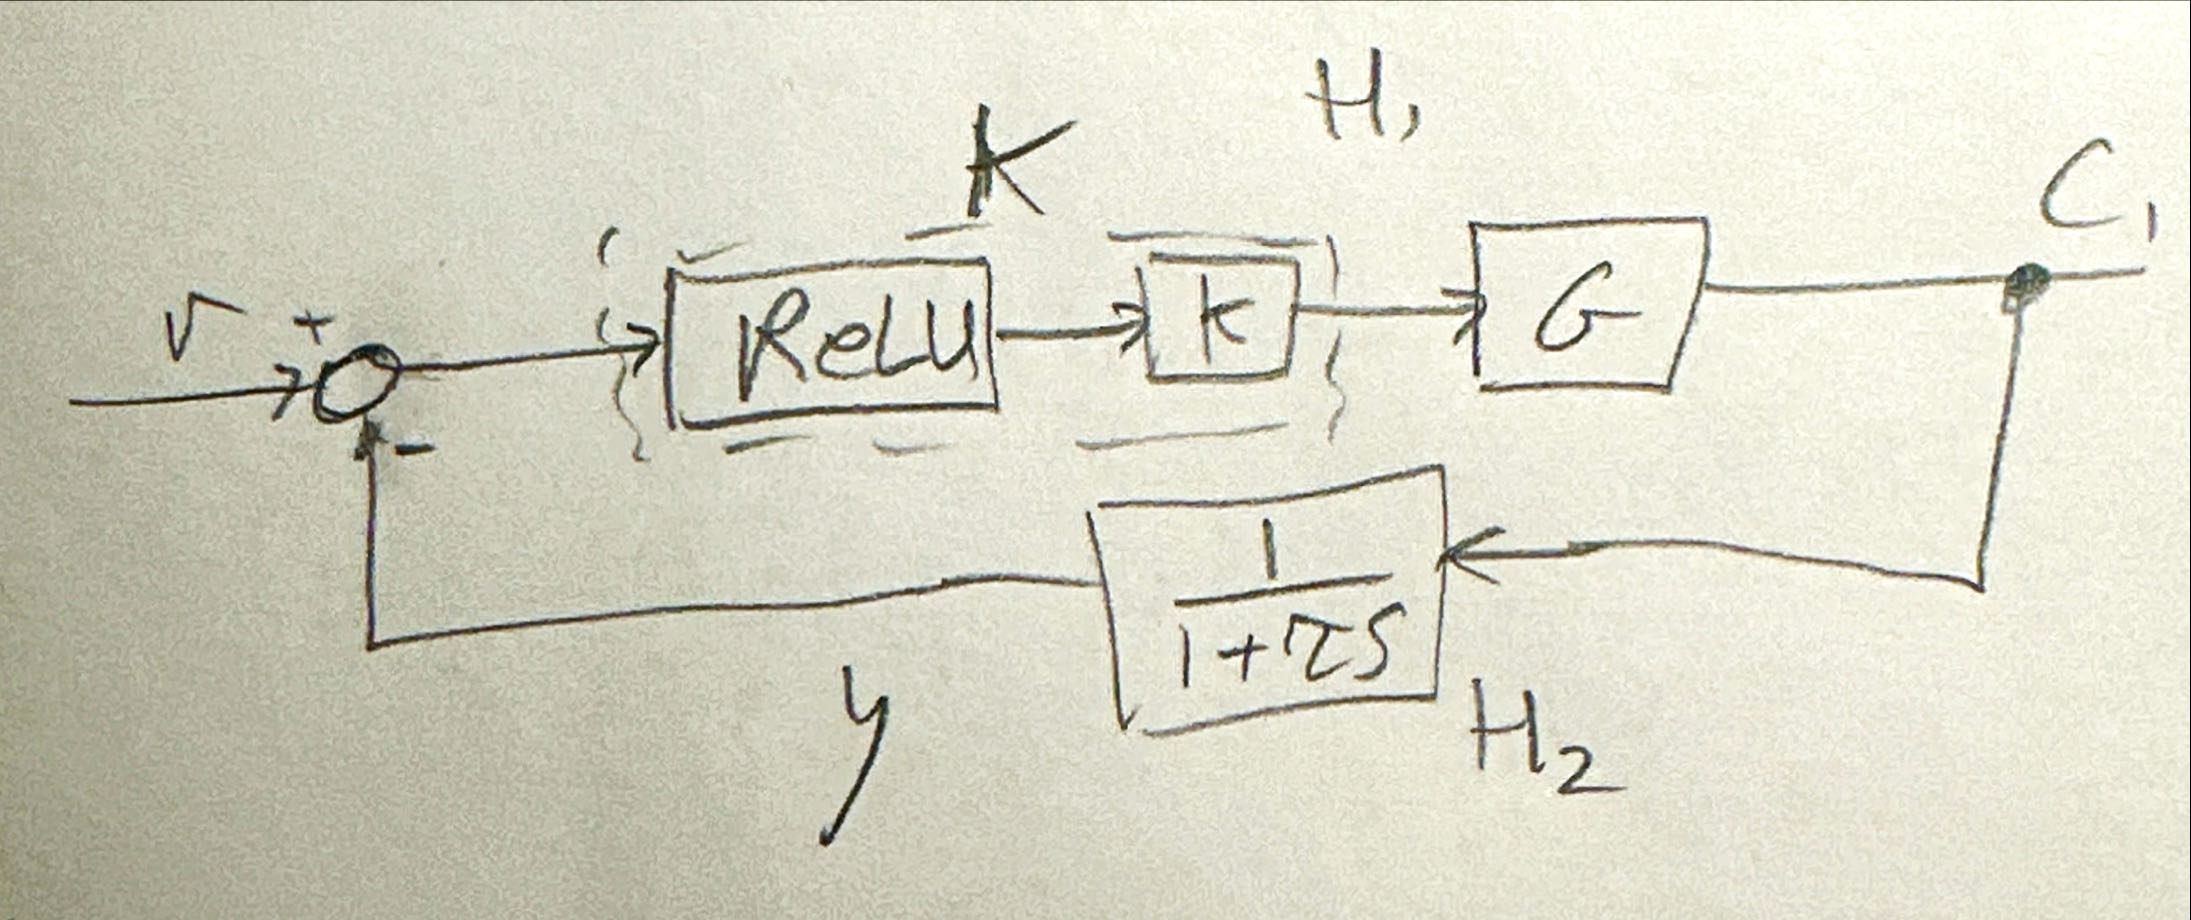 H₁
K
C₁
r + ReLU k G
-
1
1+τS
y H₂